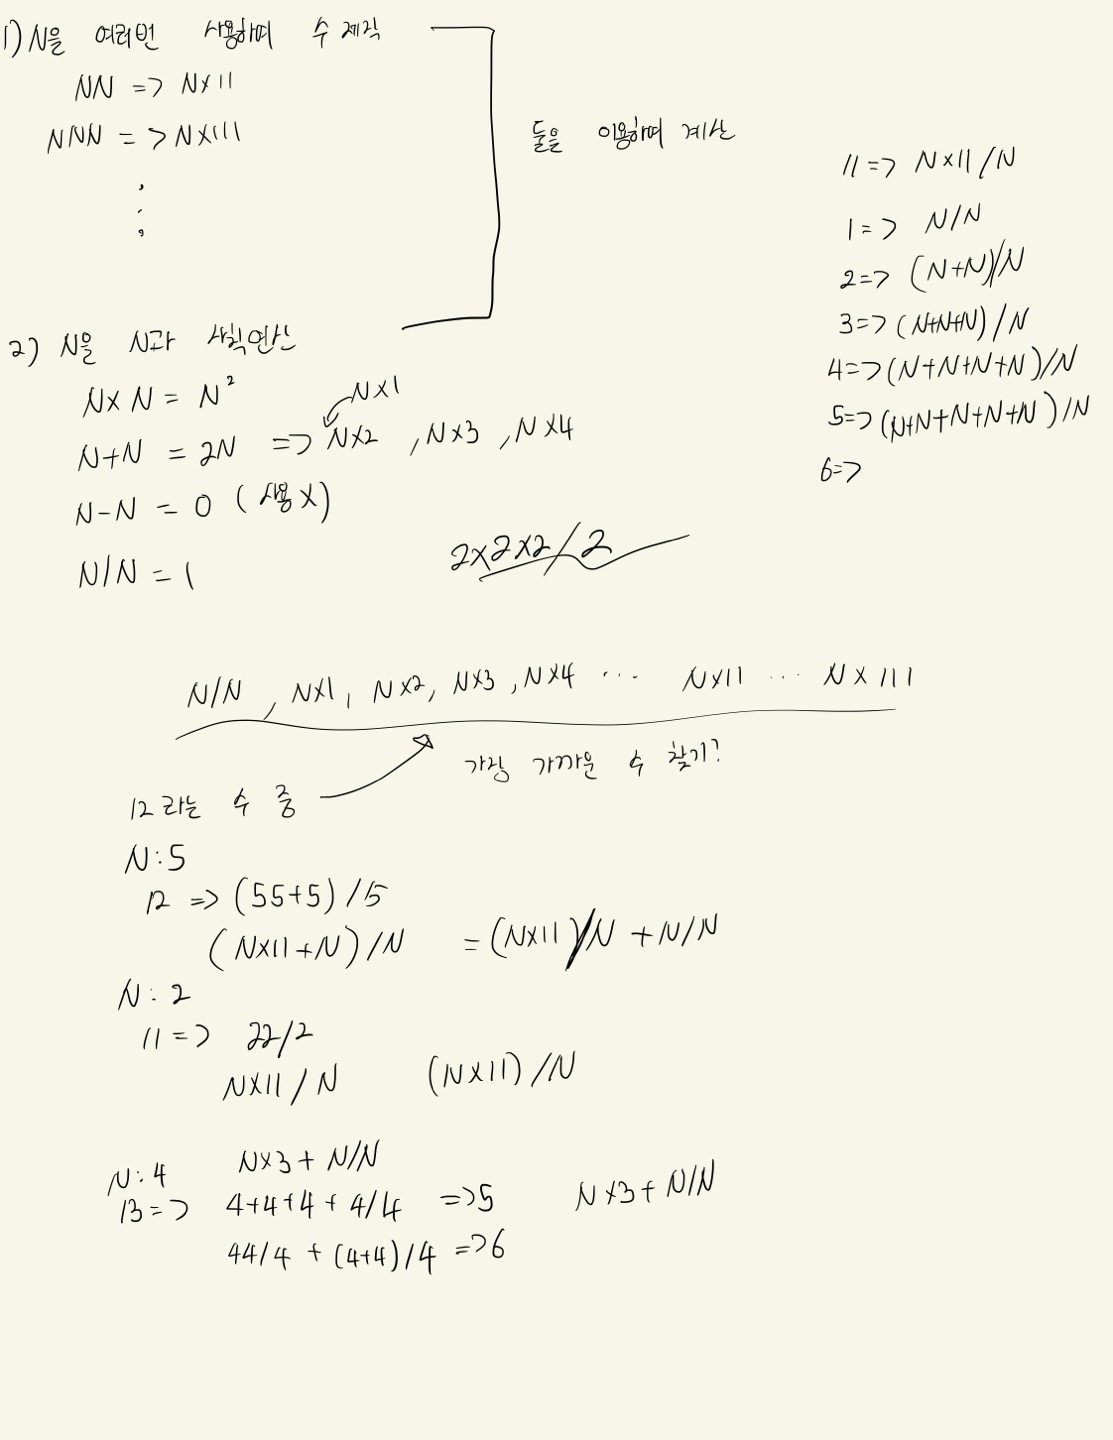 1) N을 여러번 사용하여 수 제작
NN => N×11
NNN => N×111
둘을 이용하여 계산
2) N을 N과 사칙연산
N×N = N²
N×1
N+N = 2N => N×2 , N×3 , N×4
N-N = 0 (사용X)
N/N = 1
2×2×2/2
11=> N×11/N
1=> N/N
2=> (N+N)/N
3=> (N+N+N)/N
4=> (N+N+N+N)/N
5=> (N+N+N+N+N)/N
6=>
N/N , N×1, N×2, N×3, N×4 ... N×11 ... N×111
가장 가까운 수 찾기?
12라는 수 중
N:5
12 => (55+5)/5
(N×11+N)/N = (N×11)/N + N/N
N:2
11=> 22/2
N×11/N (N×11)/N
N:4 N×3+N/N
13=> 4+4+4+4/4 =>5 N×3+N/N
44/4 + (4+4)/4 =>6